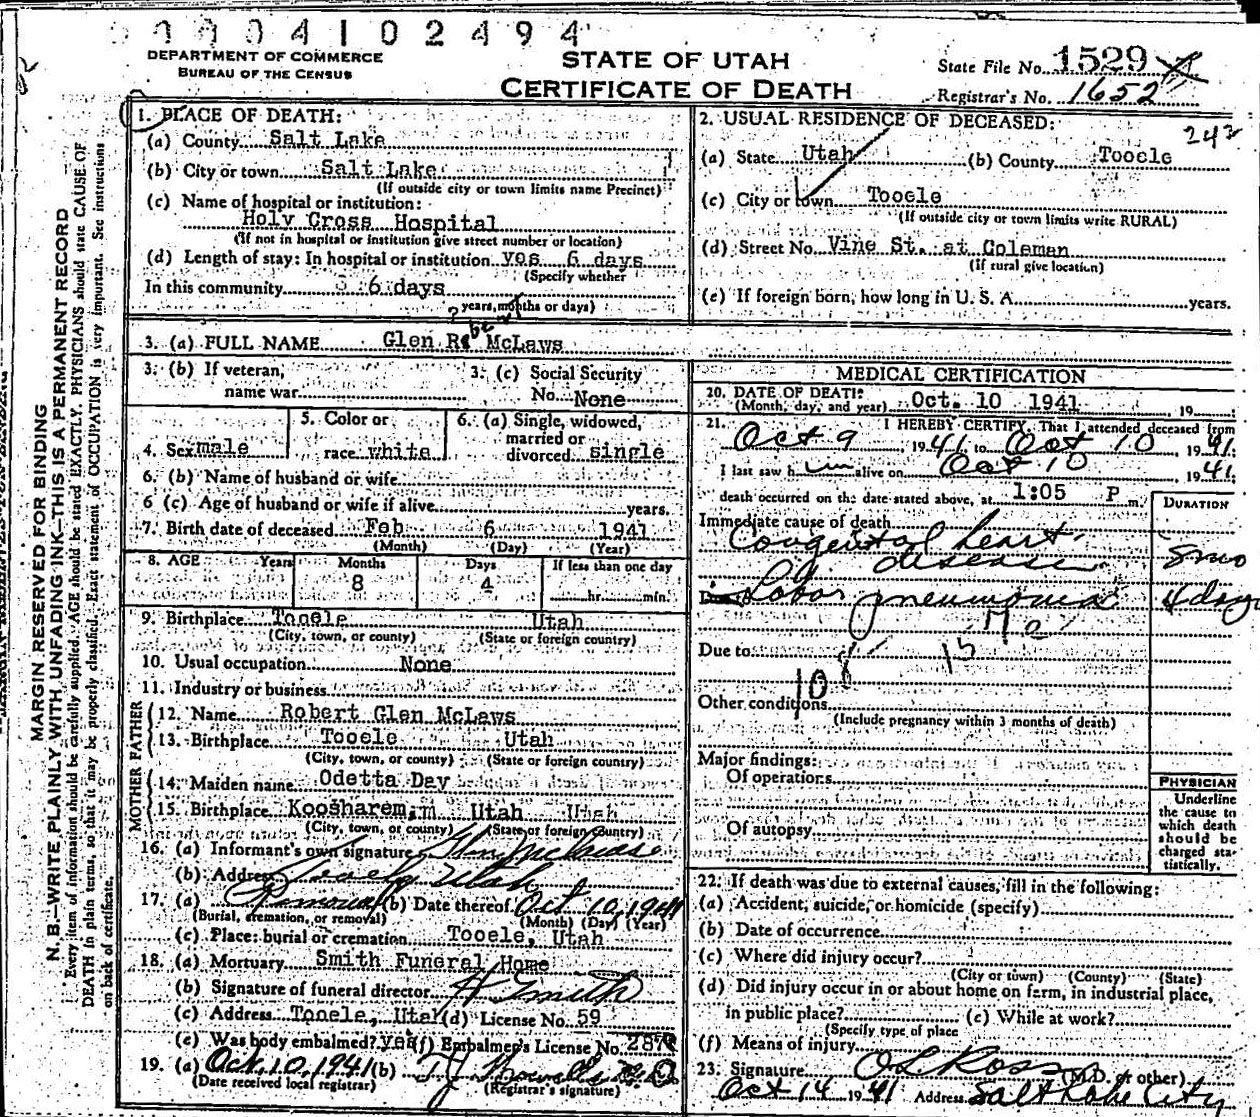 0004102494
DEPARTMENT OF COMMERCE
BUREAU OF THE CENSUS
STATE OF UTAH
CERTIFICATE OF DEATH
State File No. 1529
Registrar's No. 1652
MARGIN RESERVED FOR BINDING
N. B.—WRITE PLAINLY WITH UNFADING INK—THIS IS A PERMANENT RECORD
Every item of information should be carefully supplied. AGE should be stated EXACTLY. PHYSICIANS should state CAUSE OF
DEATH in plain terms, so that it may be properly classified. Exact statement of OCCUPATION is very important. See instructions
on back of certificate.
1. PLACE OF DEATH:
(a) County Salt Lake
(b) City or town Salt Lake
(If outside city or town limits name Precinct)
(c) Name of hospital or institution:
Holy Cross Hospital
(If not in hospital or institution give street number or location)
(d) Length of stay: In hospital or institution yes 6 days
(Specify whether
In this community 6 days
years, months or days)
2. USUAL RESIDENCE OF DECEASED:
242
(a) State Utah (b) County Tooele
(c) City or town Tooele
(If outside city or town limits write RURAL)
(d) Street No. Vine St. at Coleman
(If rural give location)
(e) If foreign born, how long in U. S. A. years.
3. (a) FULL NAME Glen McLaws
3. (b) If veteran,
name war
3. (c) Social Security
No. None
4. Sex male
5. Color or
race white
6. (a) Single, widowed,
married or
divorced single
6. (b) Name of husband or wife
6 (c) Age of husband or wife if alive years.
7. Birth date of deceased Feb 6 1941
(Month) (Day) (Year)
8. AGE Years Months Days If less than one day
8 4 hr. min.
9. Birthplace Tooele Utah
(City, town, or county) (State or foreign country)
10. Usual occupation None
11. Industry or business
FATHER
12. Name Robert Glen McLaws
13. Birthplace Tooele Utah
(City, town, or county) (State or foreign country)
MOTHER
14. Maiden name Odetta Day
15. Birthplace Koosharem, Utah Utah
(City, town, or county) (State or foreign country)
16. (a) Informant's own signature
(b) Address Tooele Utah
17. (a) Removal (b) Date thereof Oct 10, 1941
(Burial, cremation, or removal) (Month) (Day) (Year)
(c) Place: burial or cremation Tooele, Utah
18. (a) Mortuary Smith Funeral Home
(b) Signature of funeral director H Smith
(c) Address Tooele, Utah (d) License No. 59
(e) Was body embalmed? yes (f) Embalmer's License No.
19. (a) Oct. 10, 1941 (b)
(Date received local registrar) (Registrar's signature)
MEDICAL CERTIFICATION
20. DATE OF DEATH:
(Month, day, and year) Oct. 10 1941, 19
21. I HEREBY CERTIFY, That I attended deceased from
Oct 9, 1941, to Oct 10 1941;
I last saw him alive on Oct 10, 1941;
death occurred on the date stated above, at 1:05 P m.
DURATION
Immediate cause of death
Congenital heart
disease 8 mo
Lobar pneumonia 4 days
Due to
Other conditions
(Include pregnancy within 3 months of death)
Major findings:
Of operations
Of autopsy
PHYSICIAN
Underline
the cause to
which death
should be
charged sta-
tistically.
22. If death was due to external causes, fill in the following:
(a) Accident, suicide, or homicide (specify)
(b) Date of occurrence
(c) Where did injury occur?
(City or town) (County) (State)
(d) Did injury occur in or about home on farm, in industrial place,
in public place? (e) While at work?
(Specify type of place
(f) Means of injury
23. Signature O L Ross (M.D. or other)
Oct 14 1941 Address Salt Lake City